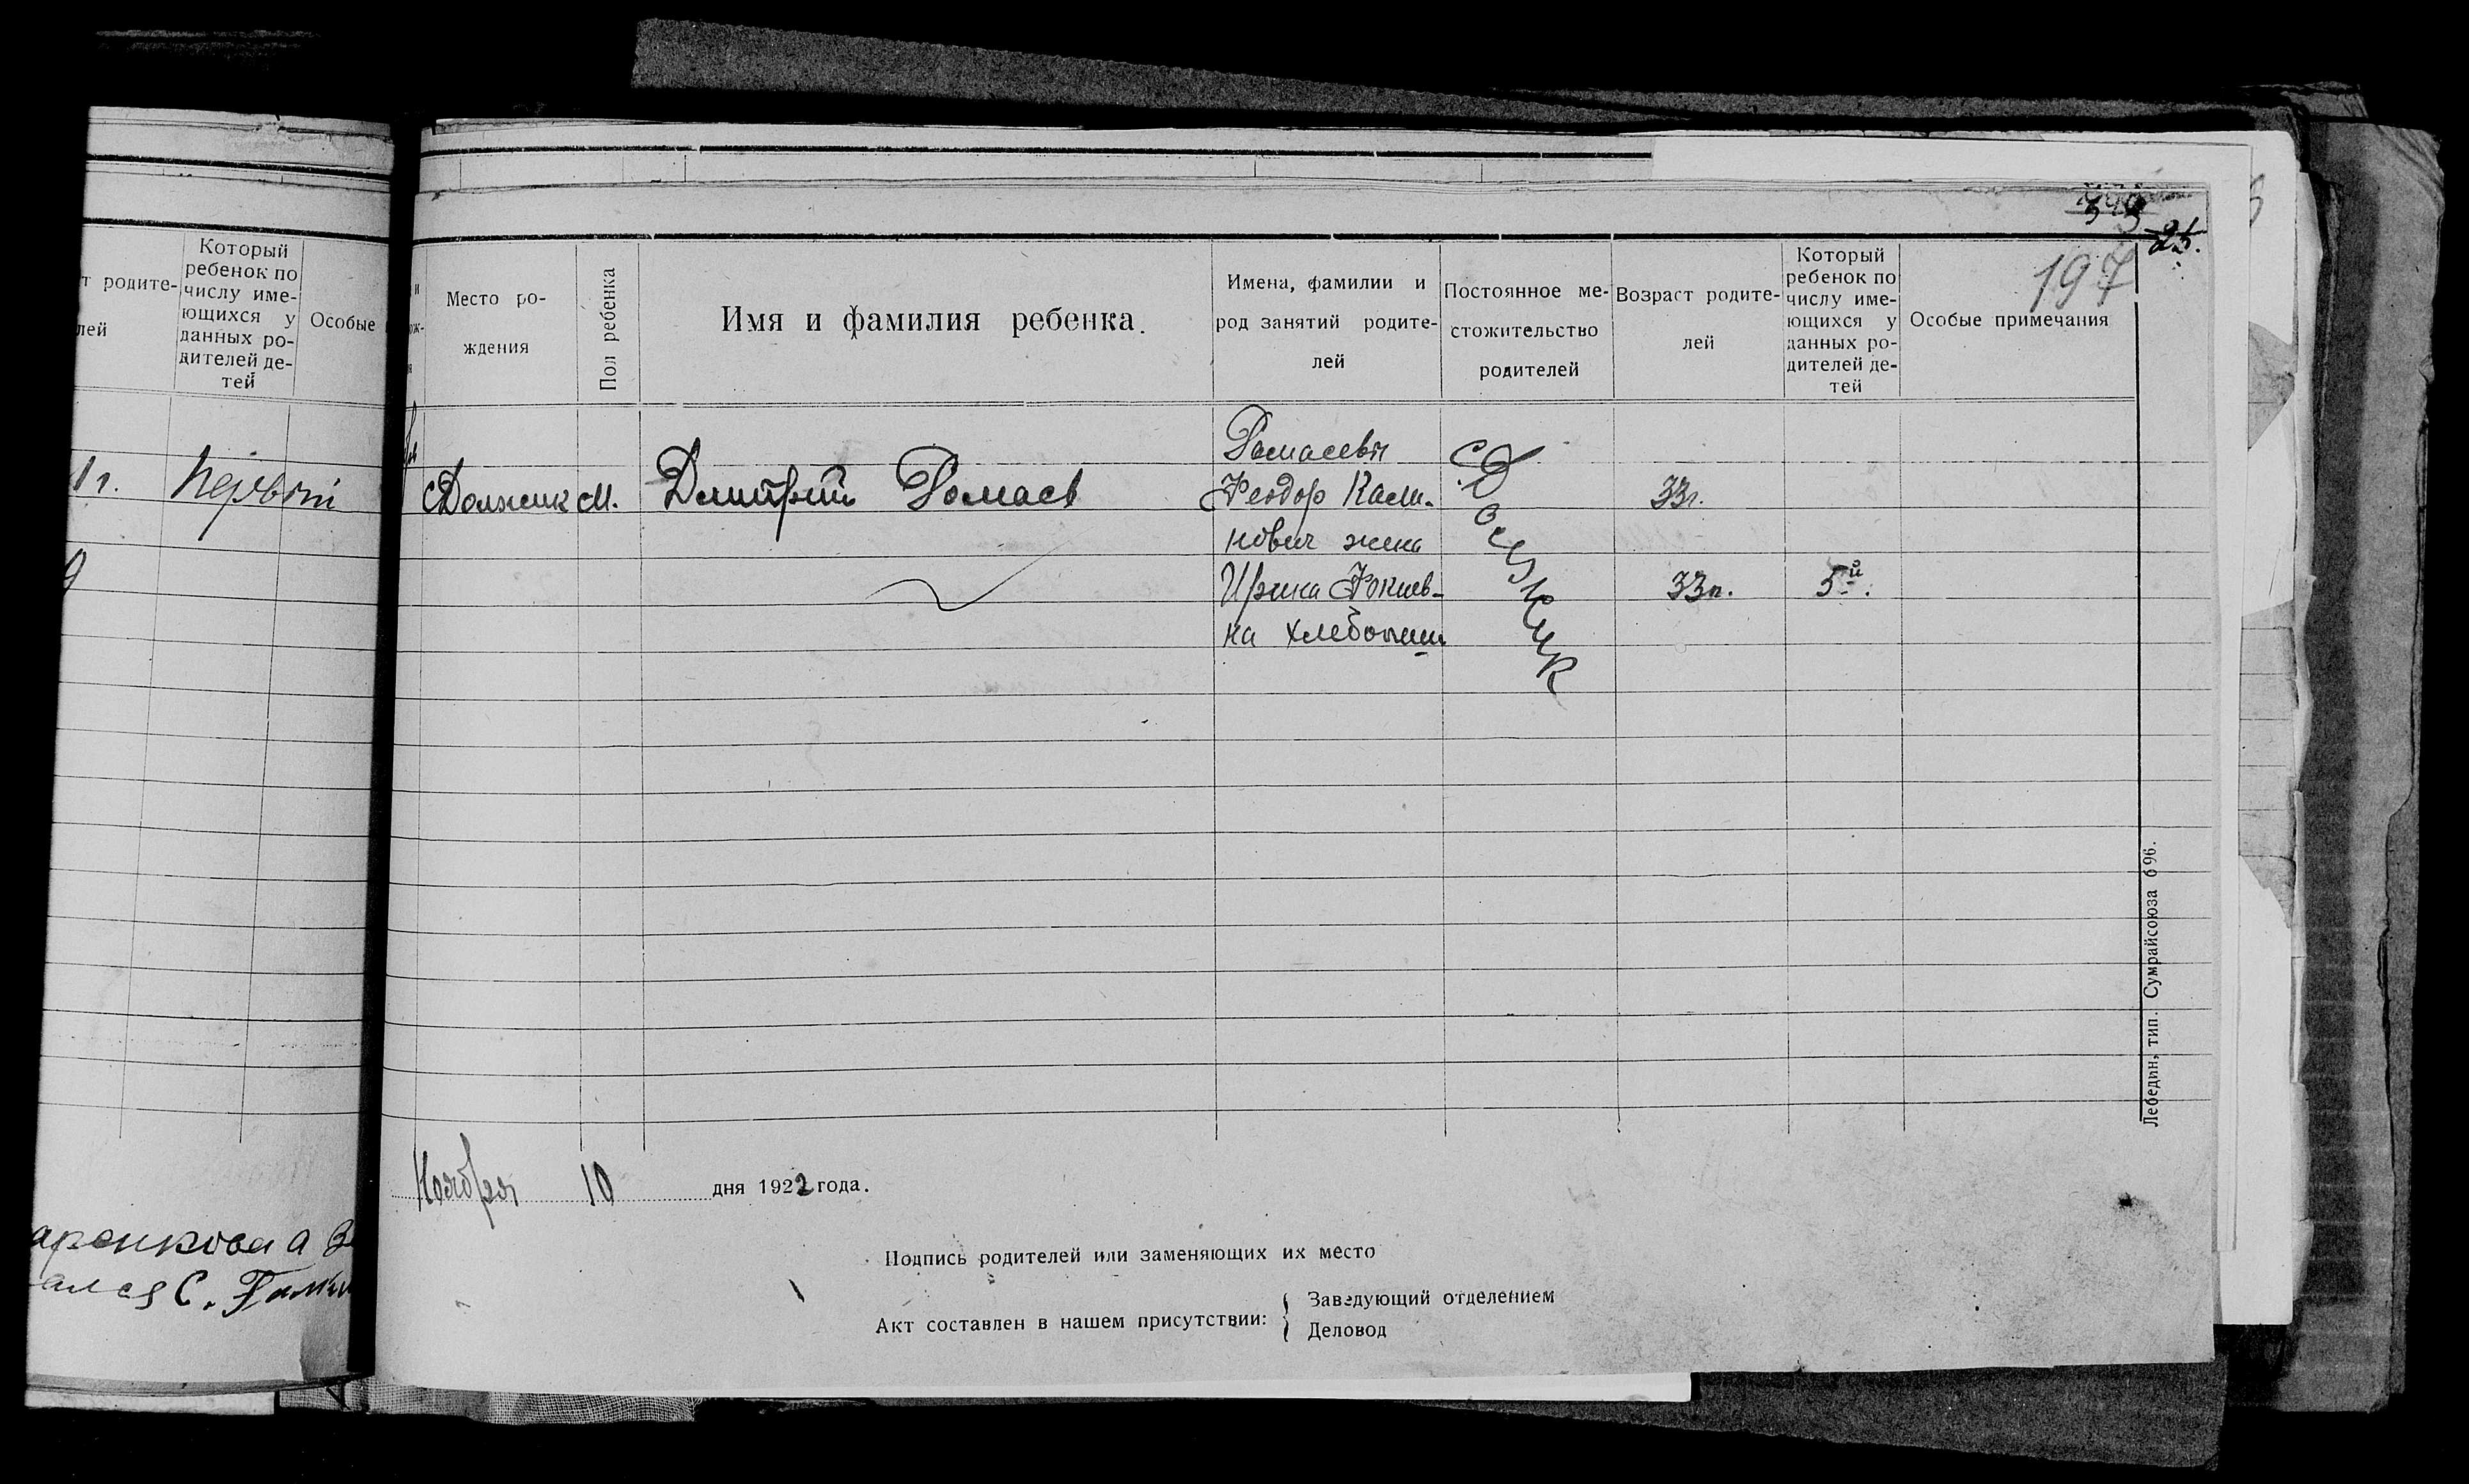 т родите-
лей
Который
ребенок по
числу име-
ющихся у
данных ро-
дителей де-
тей
Особые
1 г.
Первый
аренкова а
ался С.
197
25.
и
Место ро-
ждения
Пол ребенка
Имя и фамилия ребенка.
Имена, фамилии и
род занятий родите-
лей
Постоянное ме-
стожительство
родителей
Возраст родите-
лей
Который
ребенок по
числу име-
ющихся у
данных ро-
дителей де-
тей
Особые примечания
с Должик
М.
Дмитрий Ромаев
Ромаевы
Феодор Кали-
нович жена
Ирина Фокиев-
на хлебопаш
с. Должик
33г.
33г.
5й.
Ноября 10 дня 1922 года.
Подпись родителей или заменяющих их место
Акт составлен в нашем присутствии:
Заведующий отделением
Деловод
Лебедин, тип. Сумрайсоюза 696.